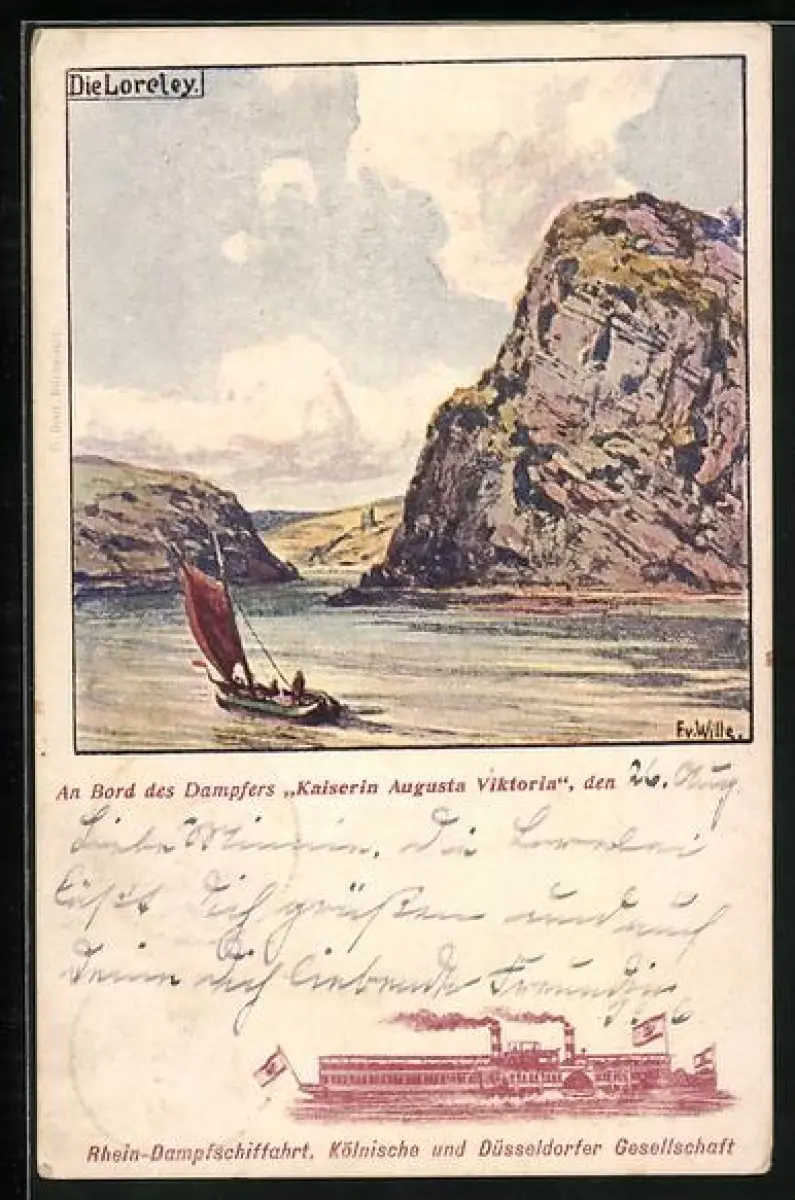 Die Loreley.
F.v.Wille.
An Bord des Dampfers „Kaiserin Augusta Viktoria“, den 26. Aug
Liebe Minnie, die Lorelei
läßt Dich grüßen und auch
Deine Dich liebende Freundin
Rhein-Dampfschiffahrt. Kölnische und Düsseldorfer Gesellschaft